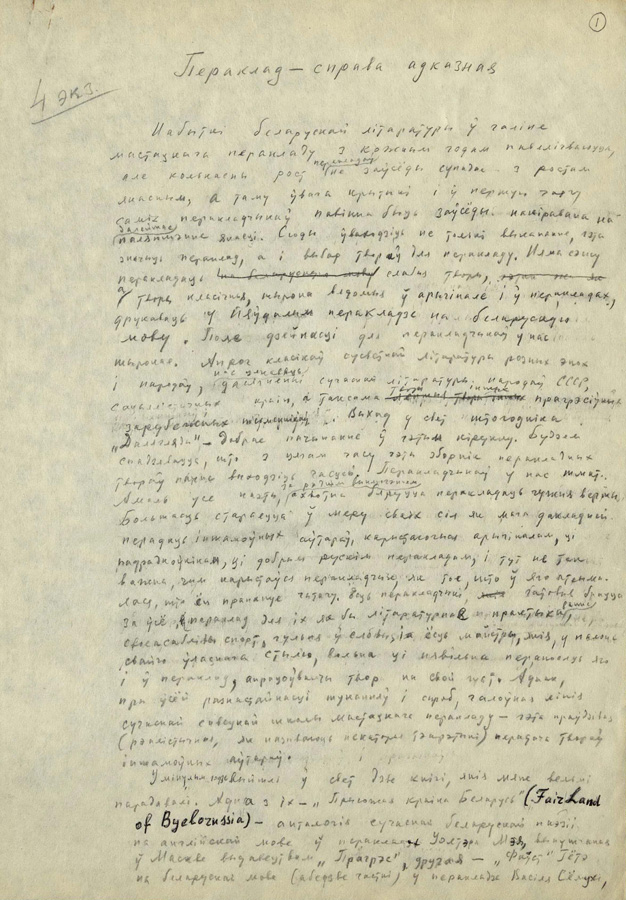 1
Пераклад — справа адказная
4 экз.
Набыткі беларускай літаратуры ў галіне
мастацкага перакладу з кожным годам павялічваюцца,
але колькасны рост перакладаў не заўсёды супадае з ростам
якасным, а таму ўвага крытыкі і ў першую чаргу
саміх перакладчыкаў павінна быць заўсёды накіравана на
далейшае паляпшэнне якасці. Сюды ўваходзіць не толькі выкананне, гэта
значыць пераклад, а і выбар твораў для перакладу. Няма сэнсу
перакладаць на беларускую мову слабыя творы,
а творы класічныя, шырока вядомыя ў арыгінале і ў перакладах,
друкаваць у няўдалым перакладзе на беларускую
мову. Поле дзейнасці для перакладчыкаў у нас
шырокае. Апроч класікаў сусветнай літаратуры розных эпох
і народаў, нас цікавяць сучаснай літаратуры народаў СССР,
сацыялістычных краін, а таксама творы прагрэсіўных
зарубежных пісьменнікаў. Выхад у свет штогодніка
„Далягляды" — добрае пачынанне ў гэтым кірунку. Будзем
спадзявацца, што з цягам часу гэты зборнік перакладных
твораў пачне выходзіць часцей. Перакладчыкаў у нас шмат.
Амаль усе паэты, за рэдкім выключэннем ахвотна бяруцца перакладаць чужыя вершы.
Большасць стараецца ў меру сваіх сіл як мага дакладней
перадаць іншамоўных аўтараў, карыстаючыся арыгіналам, ці
падрадкоўнікам, ці добрым рускім перакладам, і тут не так
важна, чым карыстаўся перакладчык, як тое, што ў яго атрыма-
лася, што ён прапануе чытачу. Ёсць перакладчыкі, гатовыя брацца
за ўсё. Пераклад для іх як бы літаратурная практыка,
свайго ўласнага стылю, вольна ці нявольна пераносяць яго
і ў пераклад, апрацоўваючы твор на свой густ. Аднак,
пры ўсёй разнастайнасці шуканняў і спроб, галоўная лінія
сучаснай савецкай школы мастацкага перакладу — гэта праўдзівая
(рэалістычная, як называюць некаторыя тэарэтыкі) перадача твораў
іншамоўных аўтараў.
У мінулым годзе выйшлі ў свет дзве кнігі, якія мяне вельмі
парадавалі. Адна з іх — „Прыгожая краіна Беларусь" (Fair Land
of Byelorussia) — анталогія сучаснай беларускай паэзіі
на англійскай мове ў перакладах Уолтэра Мэй, выпушчаная
ў Маскве выдавецтвам „Прагрэс", другая — „Фауст" Гётэ
на беларускай мове (абедзве часткі) у перакладзе Васіля Сёмухі,